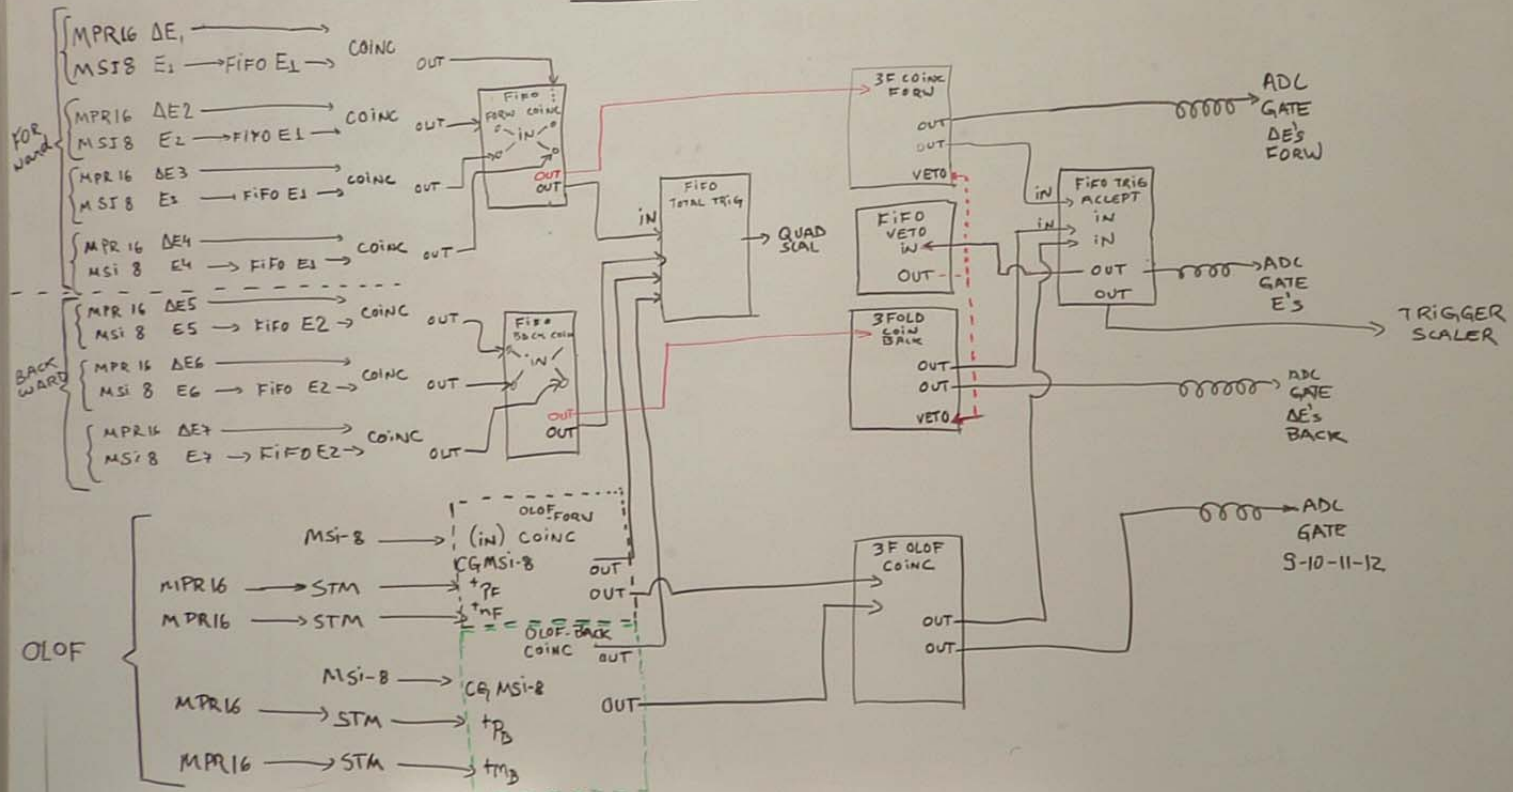 FORward
MPR16 ΔE1
COINC
MSI8 E1 FiFO E1
OUT
MPR16 ΔE2
COINC
MSI8 E2 FIFO E1
OUT
MPR16 ΔE3
COINC
MSI8 E3 FiFO E1
OUT
MPR 16 ΔE4
COINC
MSi 8 E4 FiFO E1
OUT
BACKWARD
MPR 16 ΔE5
COINC
MSi 8 E5 FiFO E2
OUT
MPR 16 ΔE6
COINC
MSi 8 E6 FiFO E2
OUT
MPR16 ΔE7
COINC
MSi 8 E7 FiFO E2
OUT
FiFO
FORW COINC
iN
OUT
OUT
FiFO
BACK COIN
iN
OUT
OUT
FiFO
TOTAL TRIG
iN
QUAD
SCAL
3F COINC
FORW
OUT
OUT
VETO
FiFO
VETO
iN
OUT
3FOLD
COIN
BACK
OUT
OUT
VETO
FiFO TRiG
ACCEPT
iN
iN
iN
iN
OUT
OUT
ADC
GATE
ΔE's
FORW
ADC
GATE
E's
TRiGGER
SCALER
ADC
GATE
ΔE's
BACK
OLOF
MSi-8
MPR16 STM
MPR16 STM
OLOF-FORW
(iN) COINC
CGMSi-8
+PF
+nF
OUT
OUT
OLOF-BACK
COINC
OUT
MSi-8
CG MSi-8
MPR16 STM
+PB
OUT
MPR16 STM
+nB
3F OLOF
COINC
OUT
OUT
ADC
GATE
9-10-11-12